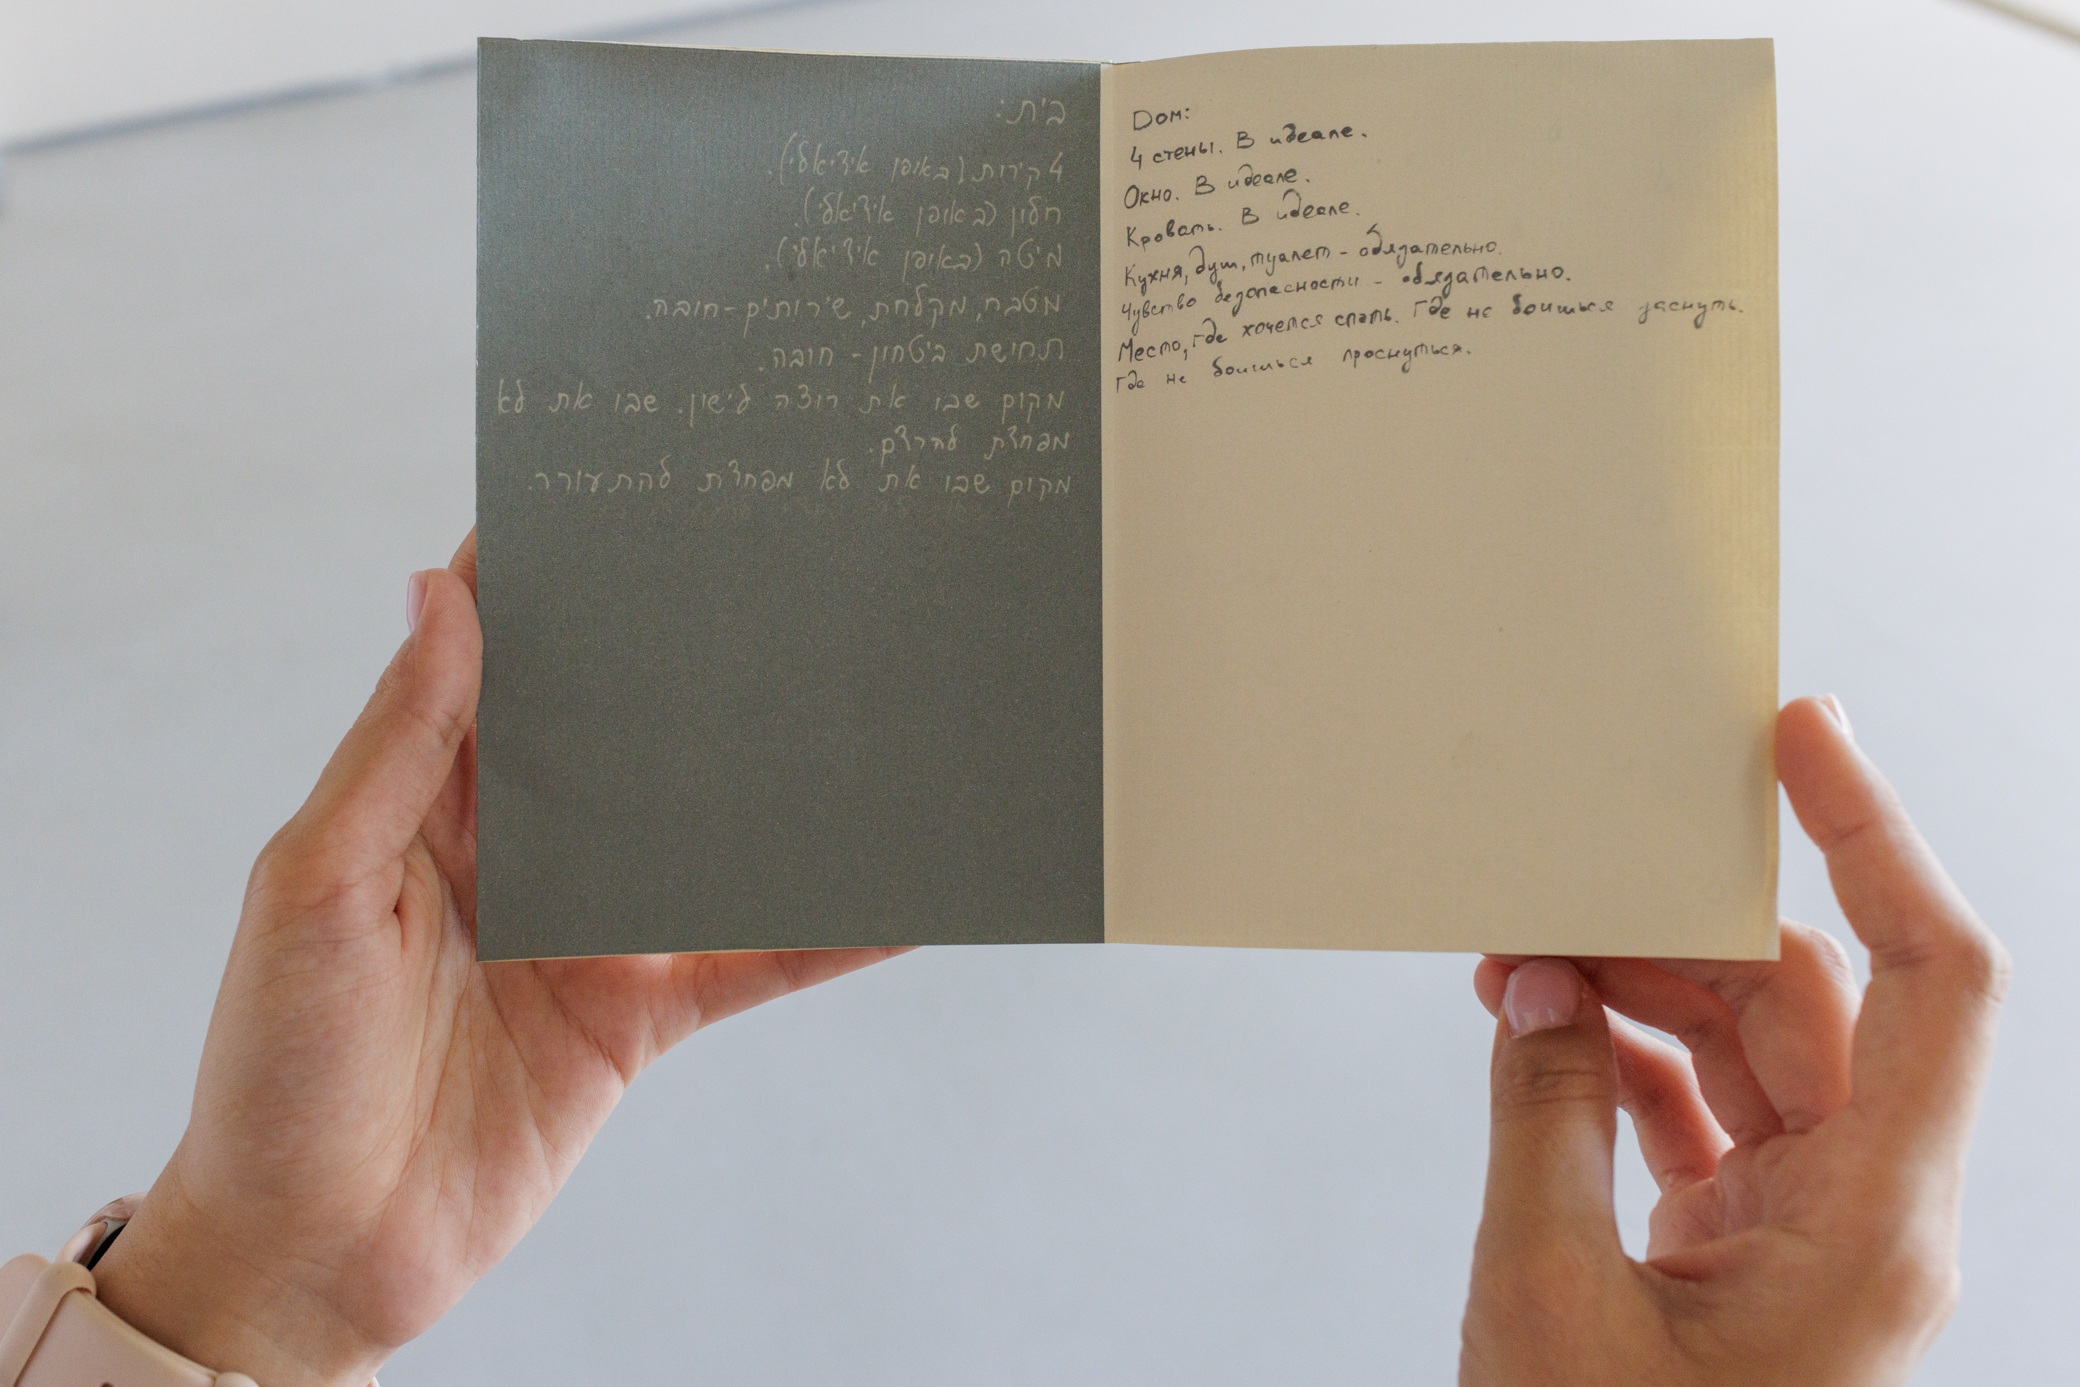 בית:
4 קירות (באופן אידיאלי).
חלון (באופן אידיאלי).
מיטה (באופן אידיאלי).
מטבח, מקלחת, שירותים - חובה.
תחישת ביטחון - חובה.
מקום שבו את רוצה לישון. שבו את לא
מפחדת להרדם.
מקום שבו את לא מפחדת להתעורר.
Дом:
4 стены. В идеале.
Окно. В идеале.
Кровать. В идеале.
Кухня, душ, туалет - обязательно.
Чувство безопасности - обязательно.
Место, где хочется спать. Где не боишься заснуть.
Где не боишься проснуться.